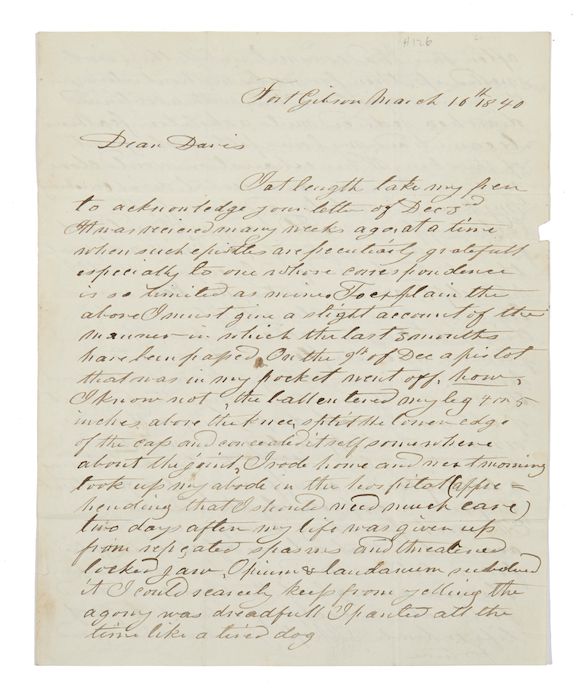 A126
Fort Gibson March 16th 1840
Dear Davis
I at length take my pen
to acknowledge your letter of Dec 3rd
It was recieved many weeks ago at a time
when such epistles are peculiarly gratefull
especially to one whose correspondence
is so limited as mine, To explain the
above I must give a slight account of the
manner in which the last 3 months
have been passed, On the 9th of Dec a pistol
that was in my pocket went off, how,
I know not, the ball entered my leg 4 or 5
inches above the knee, split the lower edge
of the cap and concealed itself somewhere
about the joint, I rode home and next morning
took up my abode in the hospital (appre=
hending that I should need much care)
two days after my life was given up
from repeated spasms and threatened
locked jaw, Opium & laudanum subdued
it I could scarcely keep from yelling the
agony was dreadfull I panted all the
time like a tired dog